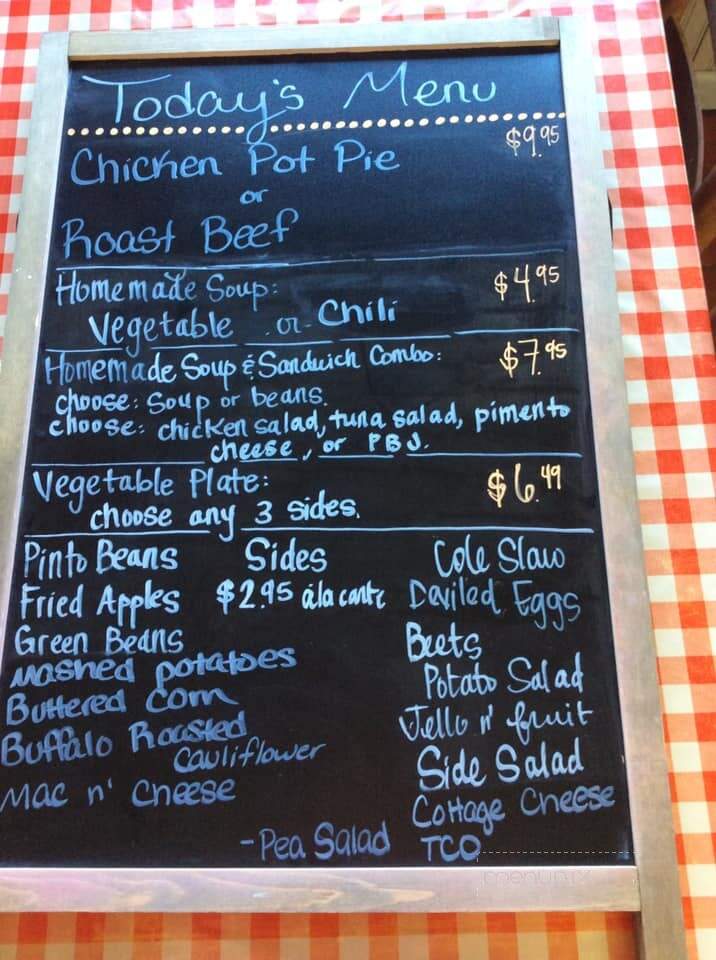 Today's Menu
Chicken Pot Pie $9.95
or
Roast Beef
Homemade Soup: $4.95
Vegetable or Chili
Homemade Soup & Sandwich Combo: $7.95
choose: Soup or beans.
choose: chicken salad, tuna salad, pimento
cheese, or PBJ.
Vegetable Plate: $6.49
choose any 3 sides.
Sides
$2.95 á la carte
Pinto Beans
Fried Apples
Green Beans
Mashed potatoes
Buttered Corn
Buffalo Roasted
Cauliflower
Mac n' Cheese
Cole Slaw
Deviled Eggs
Beets
Potato Salad
Jello n' fruit
Side Salad
Cottage Cheese
- Pea Salad TCO